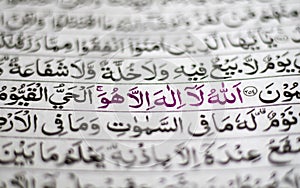 يٰٓاَيُّهَا الَّذِيْنَ اٰمَنُوْٓا اَنْفِقُوْا مِمَّا رَزَقْنٰ
يَوْمٌ لَّا بَيْعٌ فِيْهِ وَلَا خُلَّةٌ وَّلَا شَفَاعَةٌ
مُوْنَ ٢٥٤ اَللّٰهُ لَآ اِلٰهَ اِلَّا هُوَ ۚ اَلْحَيُّ الْقَيُّوْمُ
نَوْمٌ ؕ لَهٗ مَا فِي السَّمٰوٰتِ وَمَا فِي الْاَرْ
فَعُ عِنْدَهٗٓ اِلَّا بِاِذْنِهٖ ؕ يَعْلَمُ مَا بَيْنَ